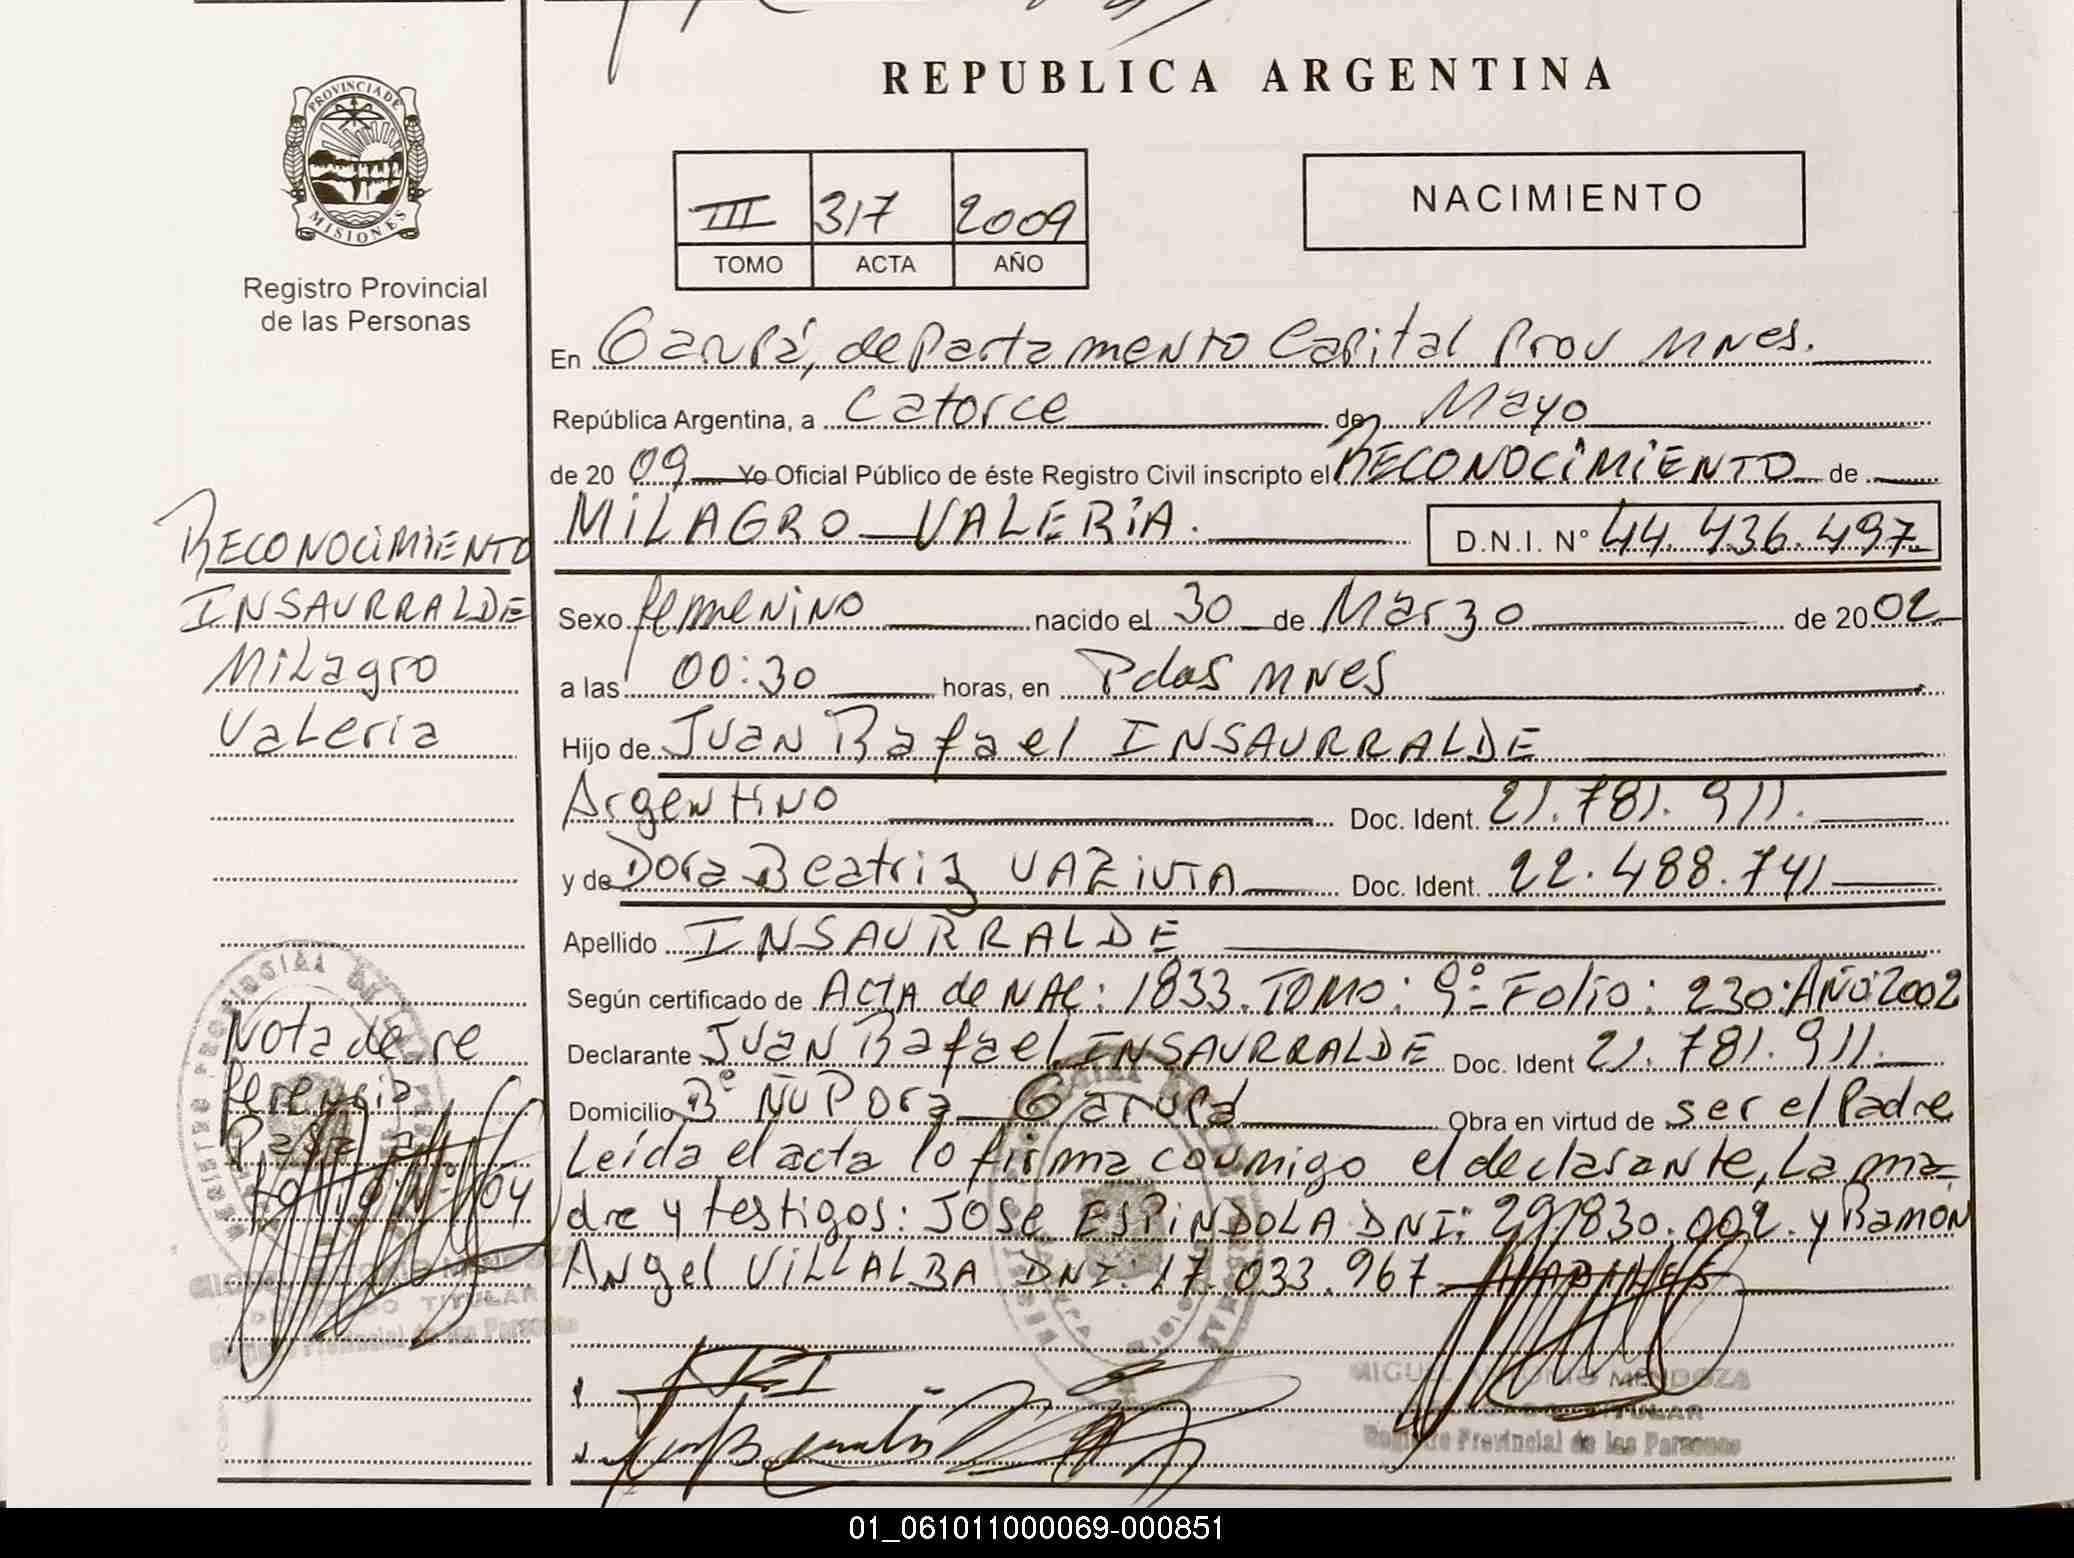 REPUBLICA ARGENTINA
PROVINCIA DE
MISIONES
Registro Provincial
de las Personas
III 317 2009
TOMO ACTA AÑO
NACIMIENTO
En Garupá, departamento Capital Prov Mnes.
República Argentina, a Catorce de Mayo
de 20 09 Yo Oficial Público de éste Registro Civil inscripto el RECONOCIMIENTO de
MILAGRO VALERIA. D.N.I. N° 44.436.497
Sexo femenino nacido el 30 de Marzo de 20 02
a las 00:30 horas, en Pdas Mnes
Hijo de Juan Rafael INSAURRALDE
Argentino Doc. Ident. 21.781.911.
y de Dora Beatriz Doc. Ident. 22.488.741
Apellido INSAURRALDE
Según certificado de Acta de NAC: 1833. TOMO: 9º Folio: 230. AÑO: 2002
Declarante Juan Rafael INSAURRALDE Doc. Ident 21.781.911.
Domicilio Bº Ñu Pora Garupá Obra en virtud de ser el Padre
Leída el acta lo firma conmigo el declarante, La ma-
dre y testigos: JOSE ESPINDOLA DNI: 29.830.002. y Ramón
Angel VILLALBA DNI: 17.033.967
MIGUEL ANTONIO MENDOZA
TITULAR
Registro Provincial de las Personas
RECONOCIMIENTO
INSAURRALDE
Milagro
Valeria
Nota de re
ferencia
Pasa al
folio Nº 104
TITULAR
Registro Provincial de las Personas
01_061011000069-000851